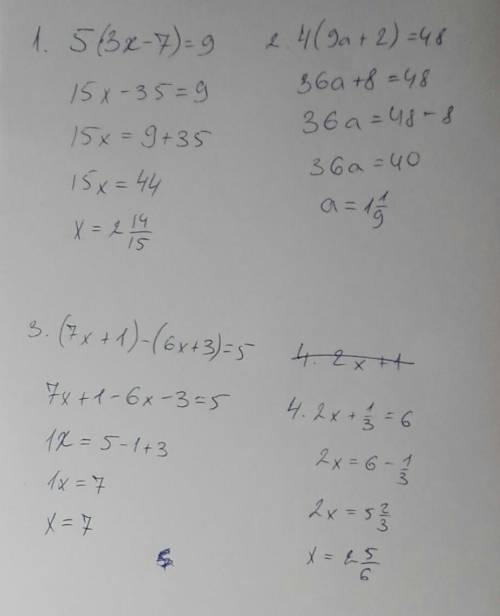 1. 5(3x-7)=9
15x-35=9
15x=9+35
15x=44
x=2 14/15
2. 4(9a+2)=48
36a+8=48
36a=48-8
36a=40
a=1 1/9
3. (7x+1)-(6x+3)=5
7x+1-6x-3=5
1x=5-1+3
1x=7
x=7
4. 2x+1
4. 2x+1/3=6
2x=6-1/3
2x=5 2/3
x=2 5/6